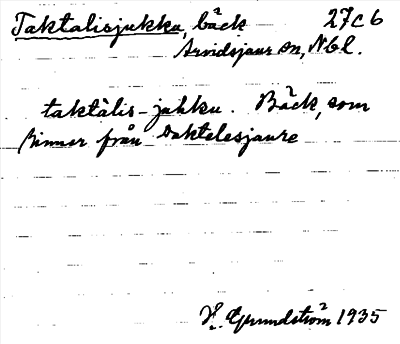 Taktalisjukku, bäck 27c6
Arvidsjaur sn, Nbl.
taktàlis-jukku. Bäck, som
rinner från Daktelesjaure
H. Grundström 1935